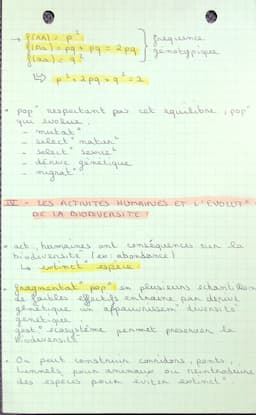 → f(AA) = p²
f(Aa) = pq + pq = 2pq
f(aa) = q²
} fréquence génotypique
↳ p² + 2pq + q² = 1
• pop° respectant pas cet équilibre, pop°
qui évolue.
- mutat°
- select° naturelle
- select° sexuelle
- dérive génétique
- migrat°
IV - LES ACTIVITÉS HUMAINES ET L'ÉVOLUT°
DE LA BIODIVERSITÉ :
• act. humaines ont conséquences sur la
biodiversité (ex: abondance)
↳ extinct° espèce
• fragmentat° pop° en plusieurs échantillons
de faibles effectifs entraine par dérive
génétique un appauvrissem° diversité
génétique.
gest° écosystème permet préserver la
biodiversité.
• On peut construire corridors, ponts,
tunnels pour animaux ou réintroduire
des espèces pour éviter extinct°